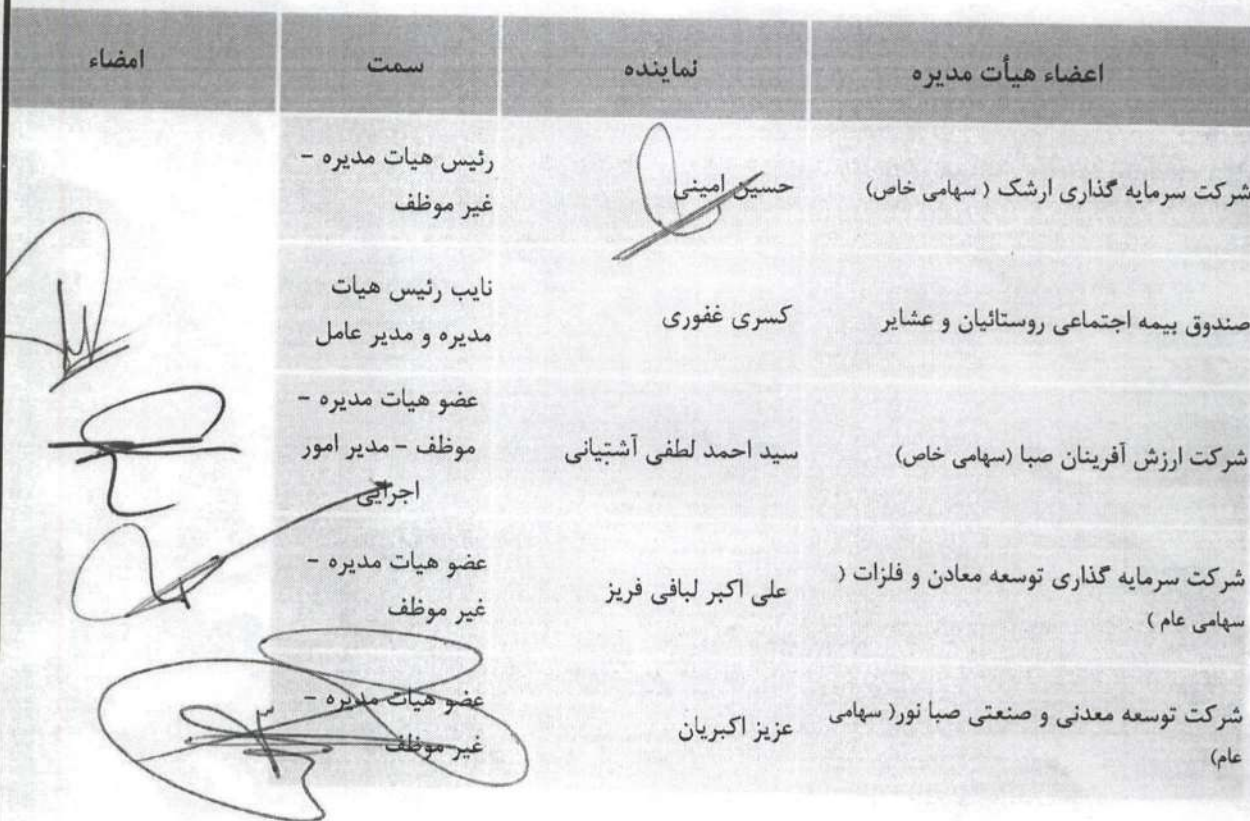 اعضاء هیأت مدیره
نماینده
سمت
امضاء
شرکت سرمایه گذاری ارشک ( سهامی خاص)
حسین امینی
رئیس هیات مدیره -
غیر موظف
صندوق بیمه اجتماعی روستائیان و عشایر
کسری غفوری
نایب رئیس هیات
مدیره و مدیر عامل
شرکت ارزش آفرینان صبا (سهامی خاص)
سید احمد لطفی آشتیانی
عضو هیات مدیره -
موظف - مدیر امور
اجرایی
شرکت سرمایه گذاری توسعه معادن و فلزات (
سهامی عام )
علی اکبر لبافی فریز
عضو هیات مدیره -
غیر موظف
شرکت توسعه معدنی و صنعتی صبا نور( سهامی
عام)
عزیز اکبریان
عضو هیات مدیره -
غیر موظف